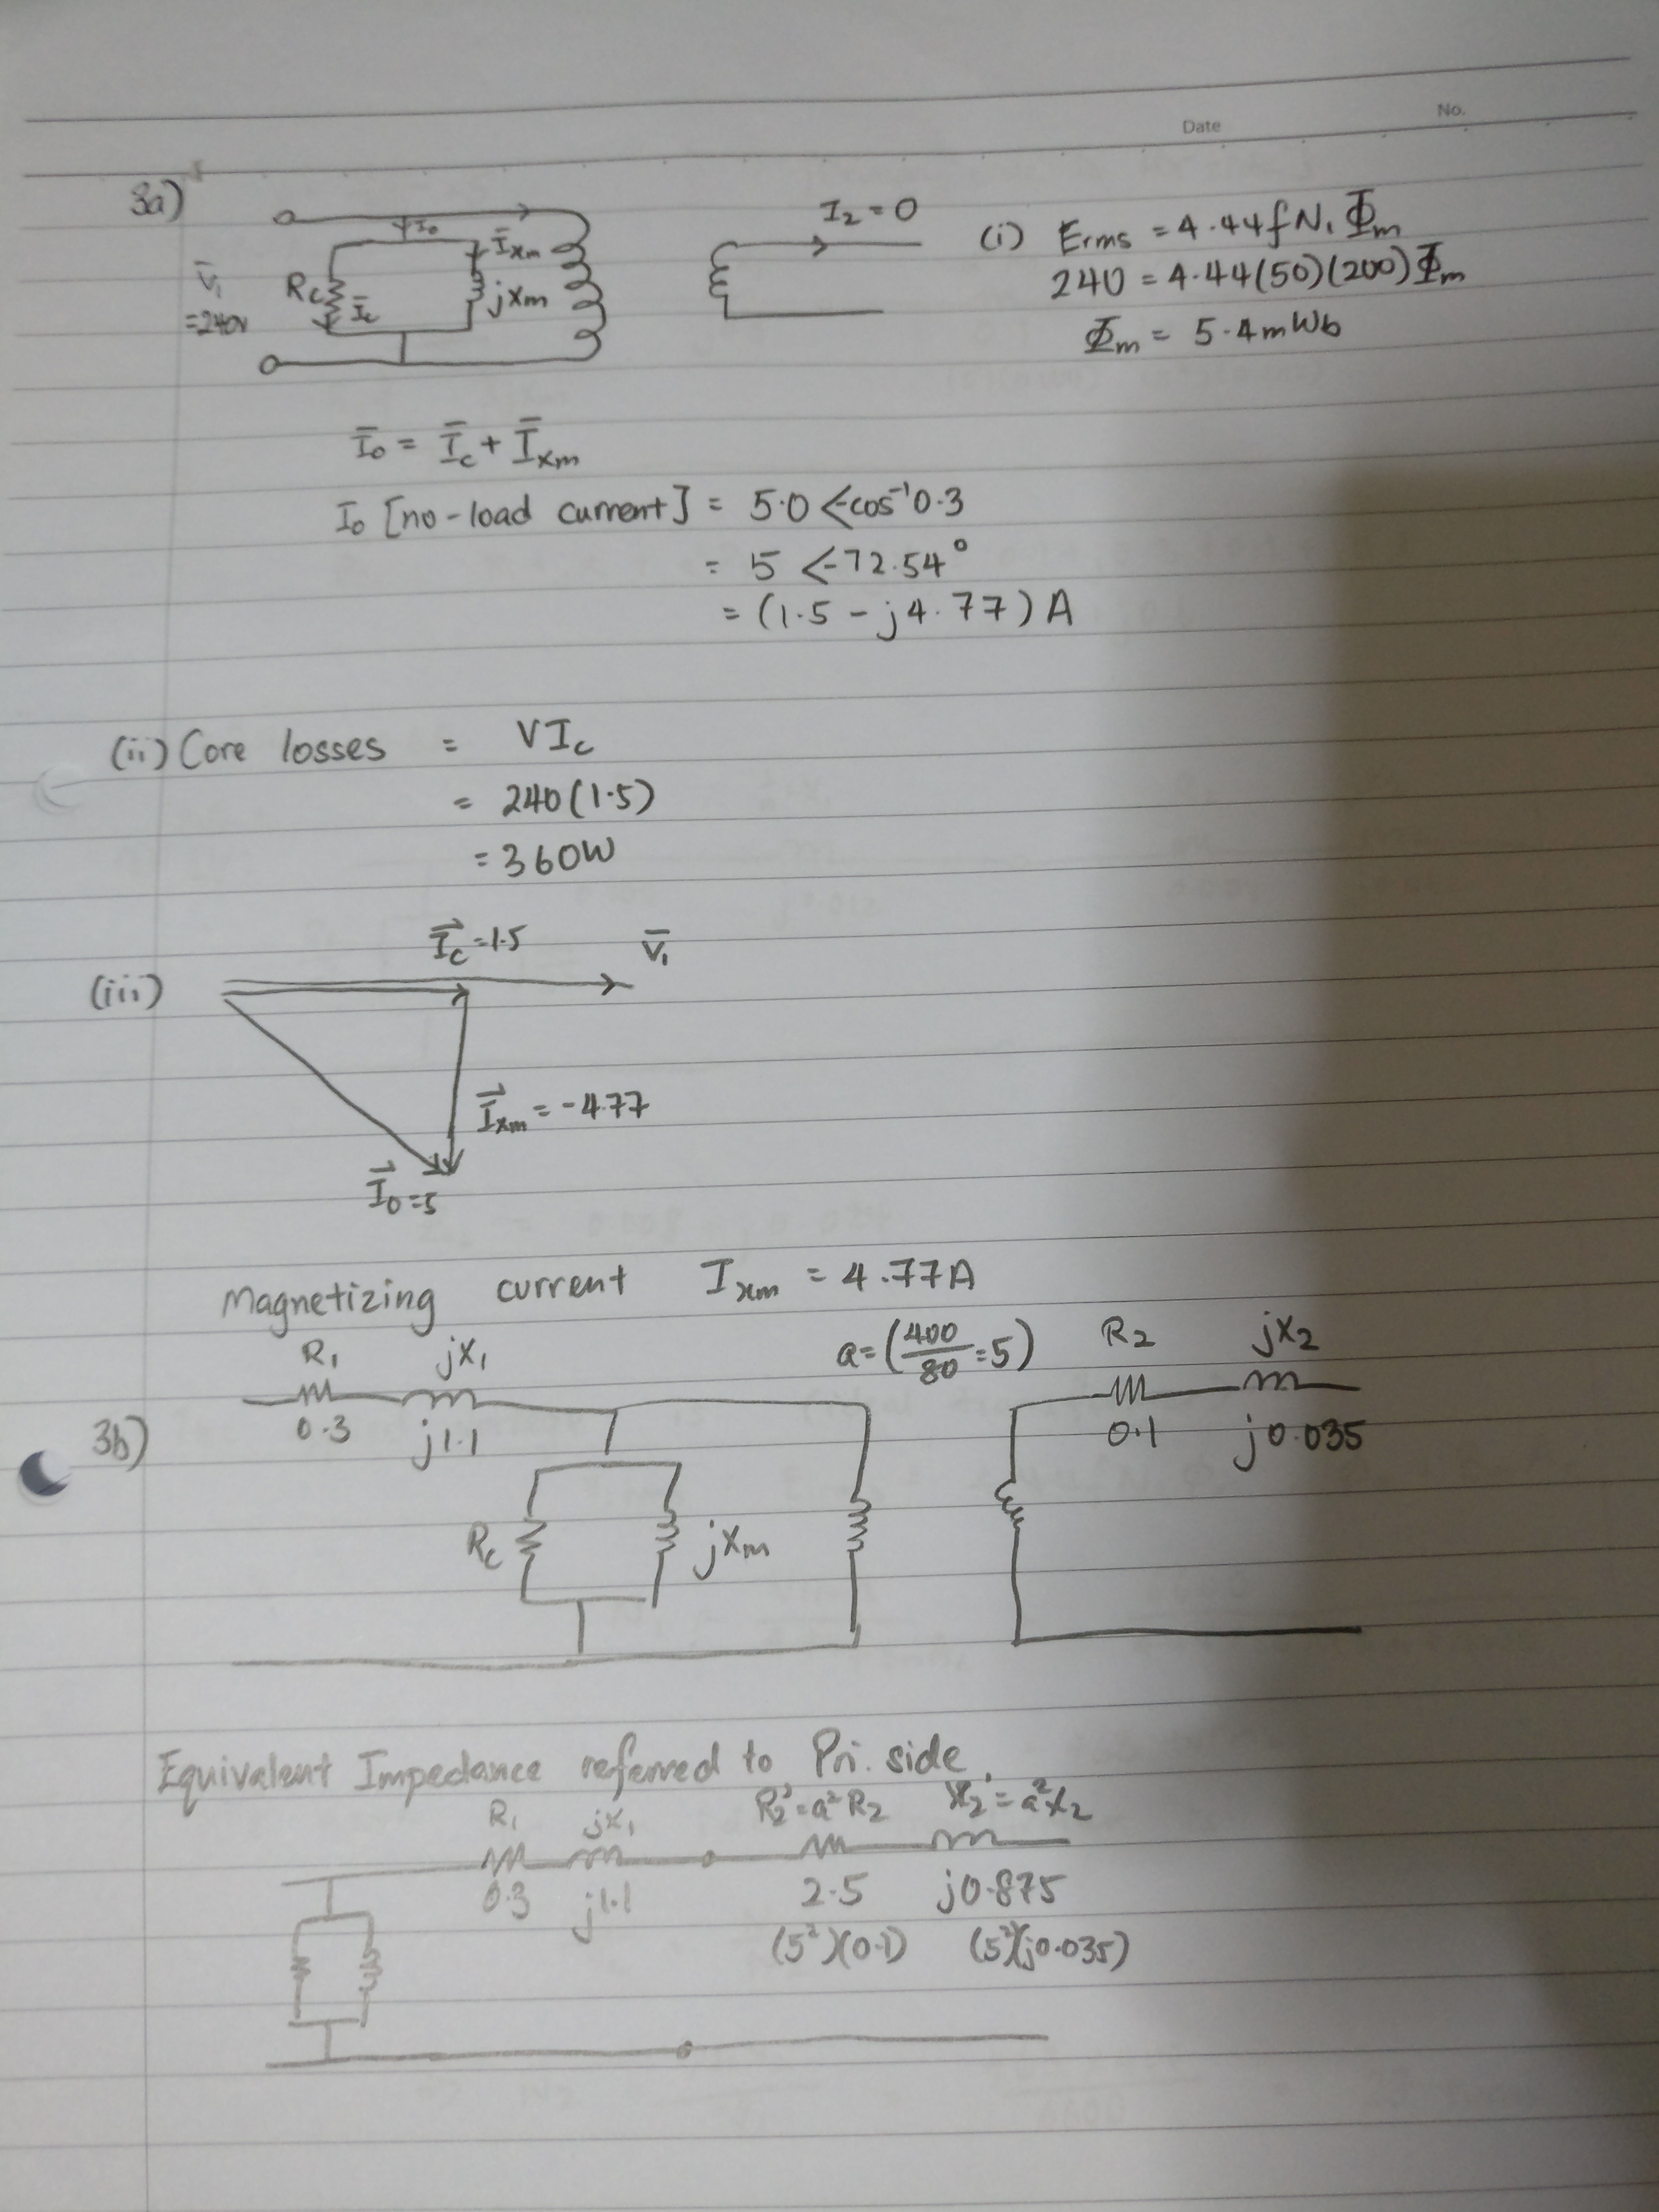 Date
No.
3a)
I₂ = 0
I₀
Ī_xm
V̄₁
=240V
R_c
Ī_c
jX_m
(i) Erms = 4.44fN₁Φ̄m
240 = 4.44(50)(200)Φ̄m
Φ̄m = 5.4mWb
Ī₀ = Ī_c + Ī_xm
I₀ [no-load current] = 5.0 <-cos⁻¹0.3
= 5 <-72.54°
= (1.5 - j4.77)A
(ii) Core losses = VI_c
= 240(1.5)
= 360W
(iii)
I⃗_c=1.5
V̄₁
I⃗_xm = -4.77
I⃗₀=5
Magnetizing current I_xm = 4.77A
3b)
R₁ jX₁
0.3 j1.1
a=(400/80=5)
R₂ jX₂
0.1 j0.035
R_c
jX_m
Equivalent Impedance referred to Pri. side.
R₁ jX₁ R₂'=a²R₂ X₂'=a²X₂
0.3 j1.1 2.5 j0.875
(5²)(0.1) (5²)(j0.035)